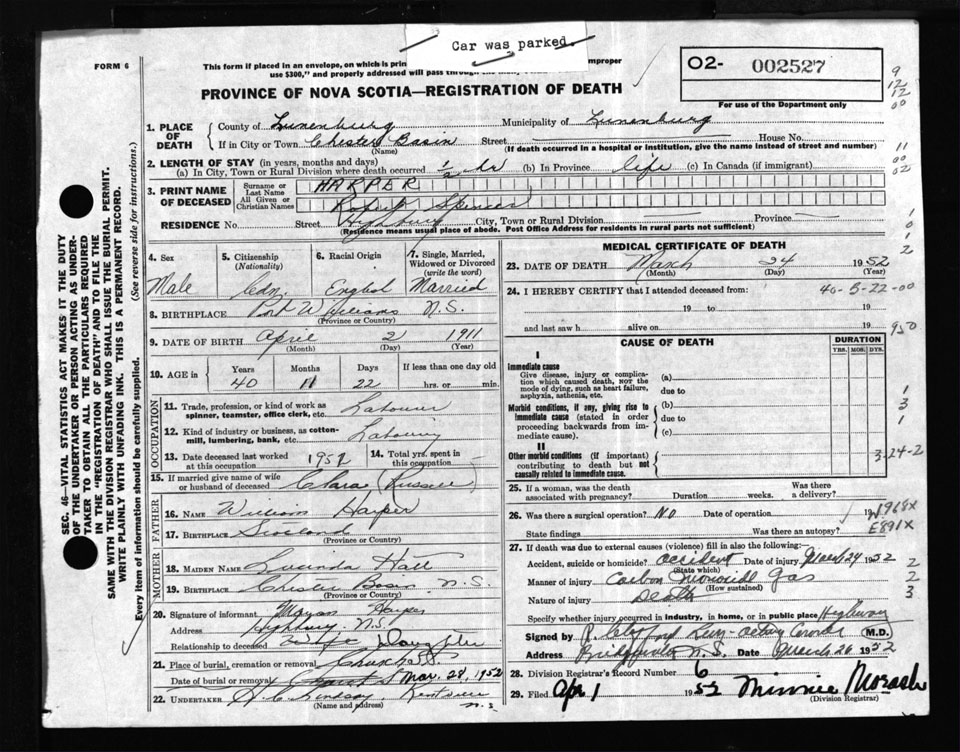 Car was parked.
FORM 6
This form if placed in an envelope, on which is prin improper
use $300," and properly addressed will pass through the
O2- 002527
For use of the Department only
PROVINCE OF NOVA SCOTIA—REGISTRATION OF DEATH
9
12
12
00
1. PLACE OF DEATH County of Lunenburg Municipality of Lunenburg
If in City or Town Chester Basin Street House No.
(Name) (If death occurred in a hospital or institution, give the name instead of street and number)
11
00
02
2. LENGTH OF STAY (in years, months and days)
(a) In City, Town or Rural Division where death occurred 1/2 (b) In Province life (c) In Canada (if immigrant)
3. PRINT NAME OF DECEASED Surname or Last Name HARPER
All Given or Christian Names Spencer
RESIDENCE No. Street Highbury City, Town or Rural Division Province
(Residence means usual place of abode. Post Office Address for residents in rural parts not sufficient)
1
0
1
2
4. Sex Male
5. Citizenship (Nationality) Cdn
6. Racial Origin English
7. Single, Married, Widowed or Divorced (write the word) Married
8. BIRTHPLACE Port Williams N.S.
(Province or Country)
9. DATE OF BIRTH April 2 1911
(Month) (Day) (Year)
10. AGE in Years Months Days If less than one day old
40 11 22 hrs. or min.
OCCUPATION
11. Trade, profession, or kind of work as spinner, teamster, office clerk, etc. Labourer
12. Kind of industry or business, as cotton-mill, lumbering, bank, etc.
13. Date deceased last worked at this occupation 1952
14. Total yrs. spent in this occupation
15. If married give name of wife or husband of deceased Clara (Russell)
FATHER
16. NAME William Harper
17. BIRTHPLACE Scotland
(Province or Country)
MOTHER
18. MAIDEN NAME Hall
19. BIRTHPLACE Chester Basin N.S.
(Province or Country)
20. Signature of informant Harper
Address Highbury N.S.
Relationship to deceased Daughter
21. Place of burial, cremation or removal
Date of burial or removal Mar. 28, 1952
22. UNDERTAKER Lindsay Kentville N.S.
(Name and address)
MEDICAL CERTIFICATE OF DEATH
23. DATE OF DEATH March 24 1952
(Month) (Day) (Year)
24. I HEREBY CERTIFY that I attended deceased from:
40-5-22-00
19 to 19
and last saw h alive on 19
950
CAUSE OF DEATH
DURATION
YRS. MOS. DYS.
I
Immediate cause
Give disease, injury or complication which caused death, not the mode of dying, such as heart failure, asphyxia, asthenia, etc.
(a)
due to
Morbid conditions, if any, giving rise to immediate cause (stated in order proceeding backwards from immediate cause).
(b)
due to
(c)
1
3
1
II
Other morbid conditions (if important) contributing to death but not causally related to immediate cause.
3-24-2
25. If a woman, was the death associated with pregnancy? Duration weeks. Was there a delivery?
26. Was there a surgical operation? No Date of operation 19
State findings Was there an autopsy?
N968X
E891X
27. If death was due to external causes (violence) fill in also the following:—
Accident, suicide or homicide? accident Date of injury March 24 1952
(State which)
Manner of injury Carbon Monoxide Gas
(How sustained)
Nature of injury Death
Specify whether injury occurred in industry, in home, or in public place Highway
2
2
3
Signed by acting Coroner M.D.
Address Bridgewater N.S. Date March 26 1952
28. Division Registrar's Record Number 6
29. Filed Apr 1 1952 Minnie Morash
(Division Registrar)
SEC. 46—VITAL STATISTICS ACT MAKES IT THE DUTY
OF THE UNDERTAKER OR PERSON ACTING AS UNDER-
TAKER TO OBTAIN ALL THE PARTICULARS REQUIRED
IN THE "REGISTRATION OF DEATH" AND TO FILE THE
SAME WITH THE DIVISION REGISTRAR WHO SHALL ISSUE THE BURIAL PERMIT.
WRITE PLAINLY WITH UNFADING INK. THIS IS A PERMANENT RECORD.
Every item of information should be carefully supplied. (See reverse side for instructions.)